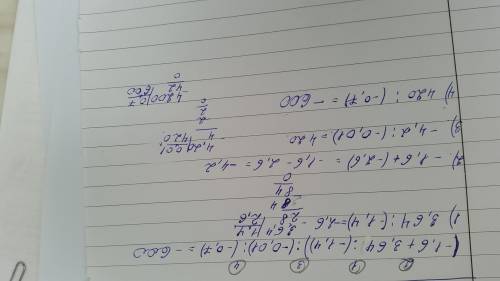 2 1 3 4
(-1,6 + 3,64 : (-1,4)) : (-0,01) : (-0,7) = -600
1) 3,64 : (-1,4) = -2,6
3,64 | 1,4
28 2,6
84
84
0
2) -1,6 + (-2,6) = -1,6 - 2,6 = -4,2
3) -4,2 : (-0,01) = 420
4,2 0,01
4 420
2
2
0
4) 420 : (-0,7) = -600
4200 | 0,7
42 600
0